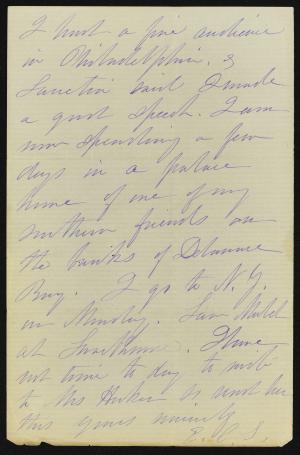 I had a fine audience
in Philadelphia, &
Lucretia said I made
a good speech. I am
now spending a few
days in a palace
home of one of my
southern friends on
the banks of Delaware
Bay. I go to N.Y.
on Monday. Saw
at Swarthmore. I have
not time to day to write
to Mrs Hooker so send her
this yours sincerely
E. C. S.